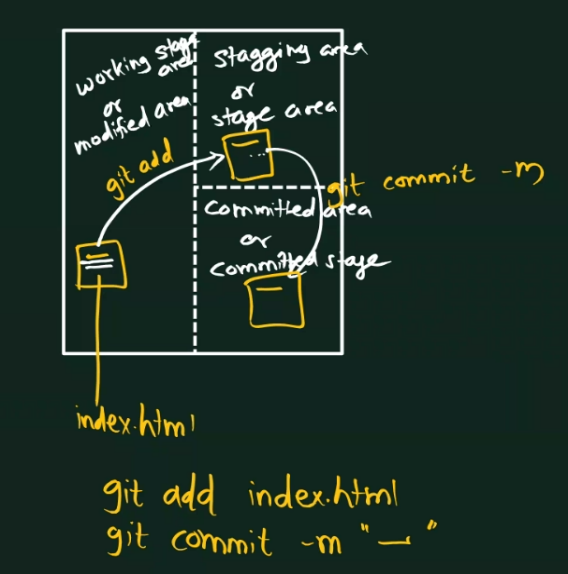 working stage
area
or
modified area
git add
stagging area
or
stage area
git commit -m
committed area
or
committed stage
index.html
git add index.html
git commit -m "—"